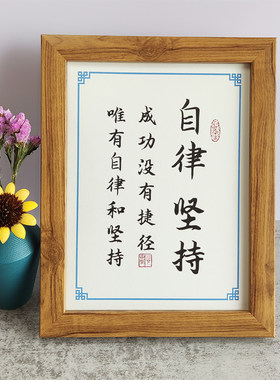 自律坚持
成功没有捷径
唯有自律和坚持